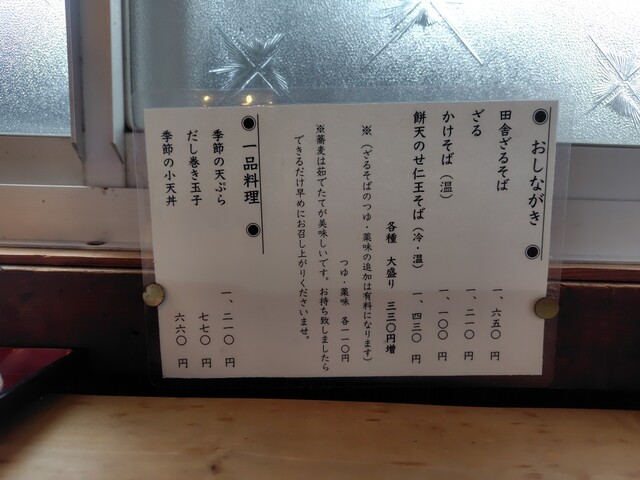 おしながき
田舎ざるそば 一、六五〇円
ざる 一、二一〇円
かけそば(温) 一、一〇〇円
餅天のせ仁王そば(冷・温) 一、四三〇円
各種 大盛り 三三〇円増
※(ざるそばのつゆ・薬味の追加は有料になります)
つゆ・薬味 各一一〇円
※蕎麦は茹でたてが美味しいです。お持ち致しましたら
できるだけ早めにお召し上がりくださいませ。
一品料理
季節の天ぷら 一、二一〇円
だし巻き玉子 七七〇円
季節の小天丼 六六〇円